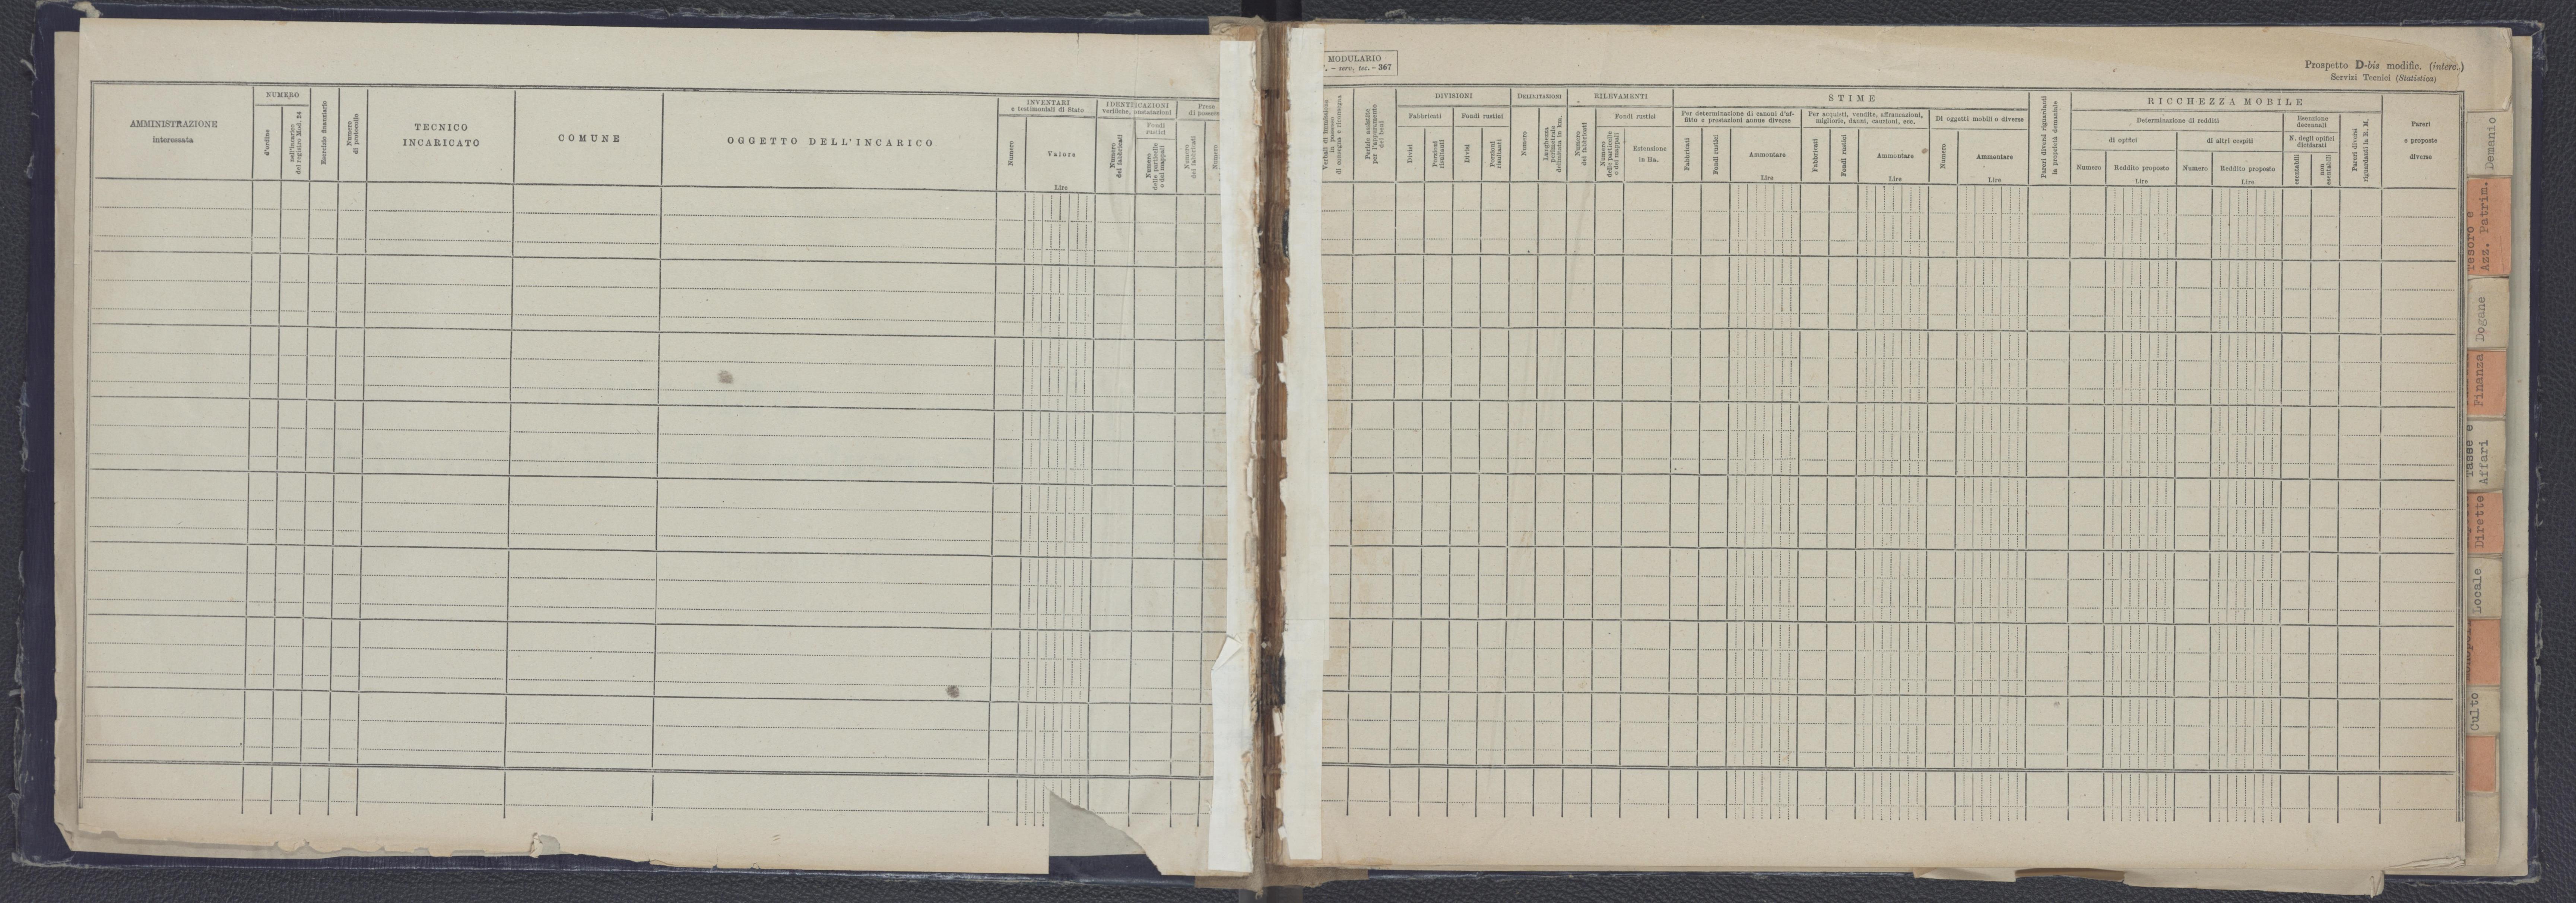 MODULARIO
. - serv. tec. - 367
Prospetto D-bis modific. (interc.)
Servizi Tecnici (Statistica)
AMMINISTRAZIONE
interessata
NUMERO
d'ordine
nell'incarico
del registro Mod. 24
Esercizio finanziario
Numero
di protocollo
TECNICO
INCARICATO
COMUNE
OGGETTO DELL'INCARICO
INVENTARI
e testimoniali di Stato
Numero
Valore
Lire
IDENTIFICAZIONI
verifiche, constatazioni
Numero
dei fabbricati
Fondi
rustici
Numero
delle particelle
o dei mappali
Prese
di possess
Numero
dei fabbricati
Numero
in possesso
di consegna e riconsegna
Perizie assistite
per l'apporzionamento
dei beni
DIVISIONI
Fabbricati
Divisi
Porzioni
risultanti
Fondi rustici
Divisi
Porzioni
risultanti
DELIMITAZIONI
Numero
Lunghezza
perimetrale
delimitata in km.
RILEVAMENTI
Numero
dei fabbricati
Fondi rustici
Numero
delle particelle
o dei mappali
Estensione
in Ha.
STIME
Per determinazione di canoni d'af-
fitto e prestazioni annue diverse
Fabbricati
Fondi rustici
Ammontare
Lire
Per acquisti, vendite, affrancazioni,
migliorie, danni, cauzioni, ecc.
Fabbricati
Fondi rustici
Ammontare
Lire
Di oggetti mobili o diverse
Numero
Ammontare
Lire
Pareri diversi riguardanti
la proprietà demaniale
RICCHEZZA MOBILE
Determinazione di redditi
di opifici
Numero
Reddito proposto
Lire
di altri cespiti
Numero
Reddito proposto
Lire
Esenzione
decennali
N. degli opifici
dicidarati
esentabili
non
esentabili
Pareri diversi
riguardanti la R. M.
Pareri
e proposte
diverse
Demanio
Tesoro e
Azz. Patrim.
Dogane
Finanza
Tasse e
Affari
Dirette
Locale
Culto